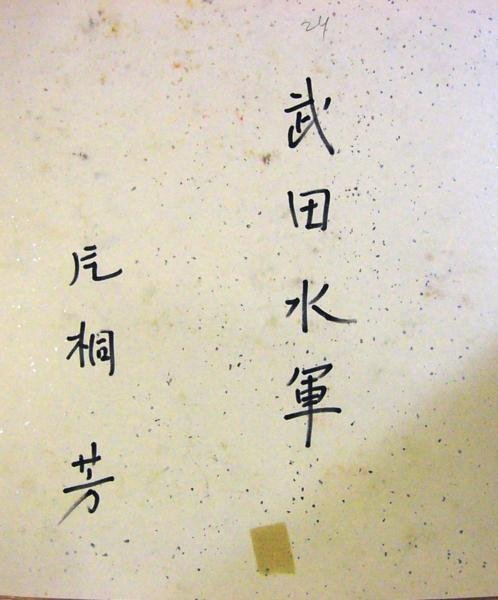 24
武田水軍
片桐芳